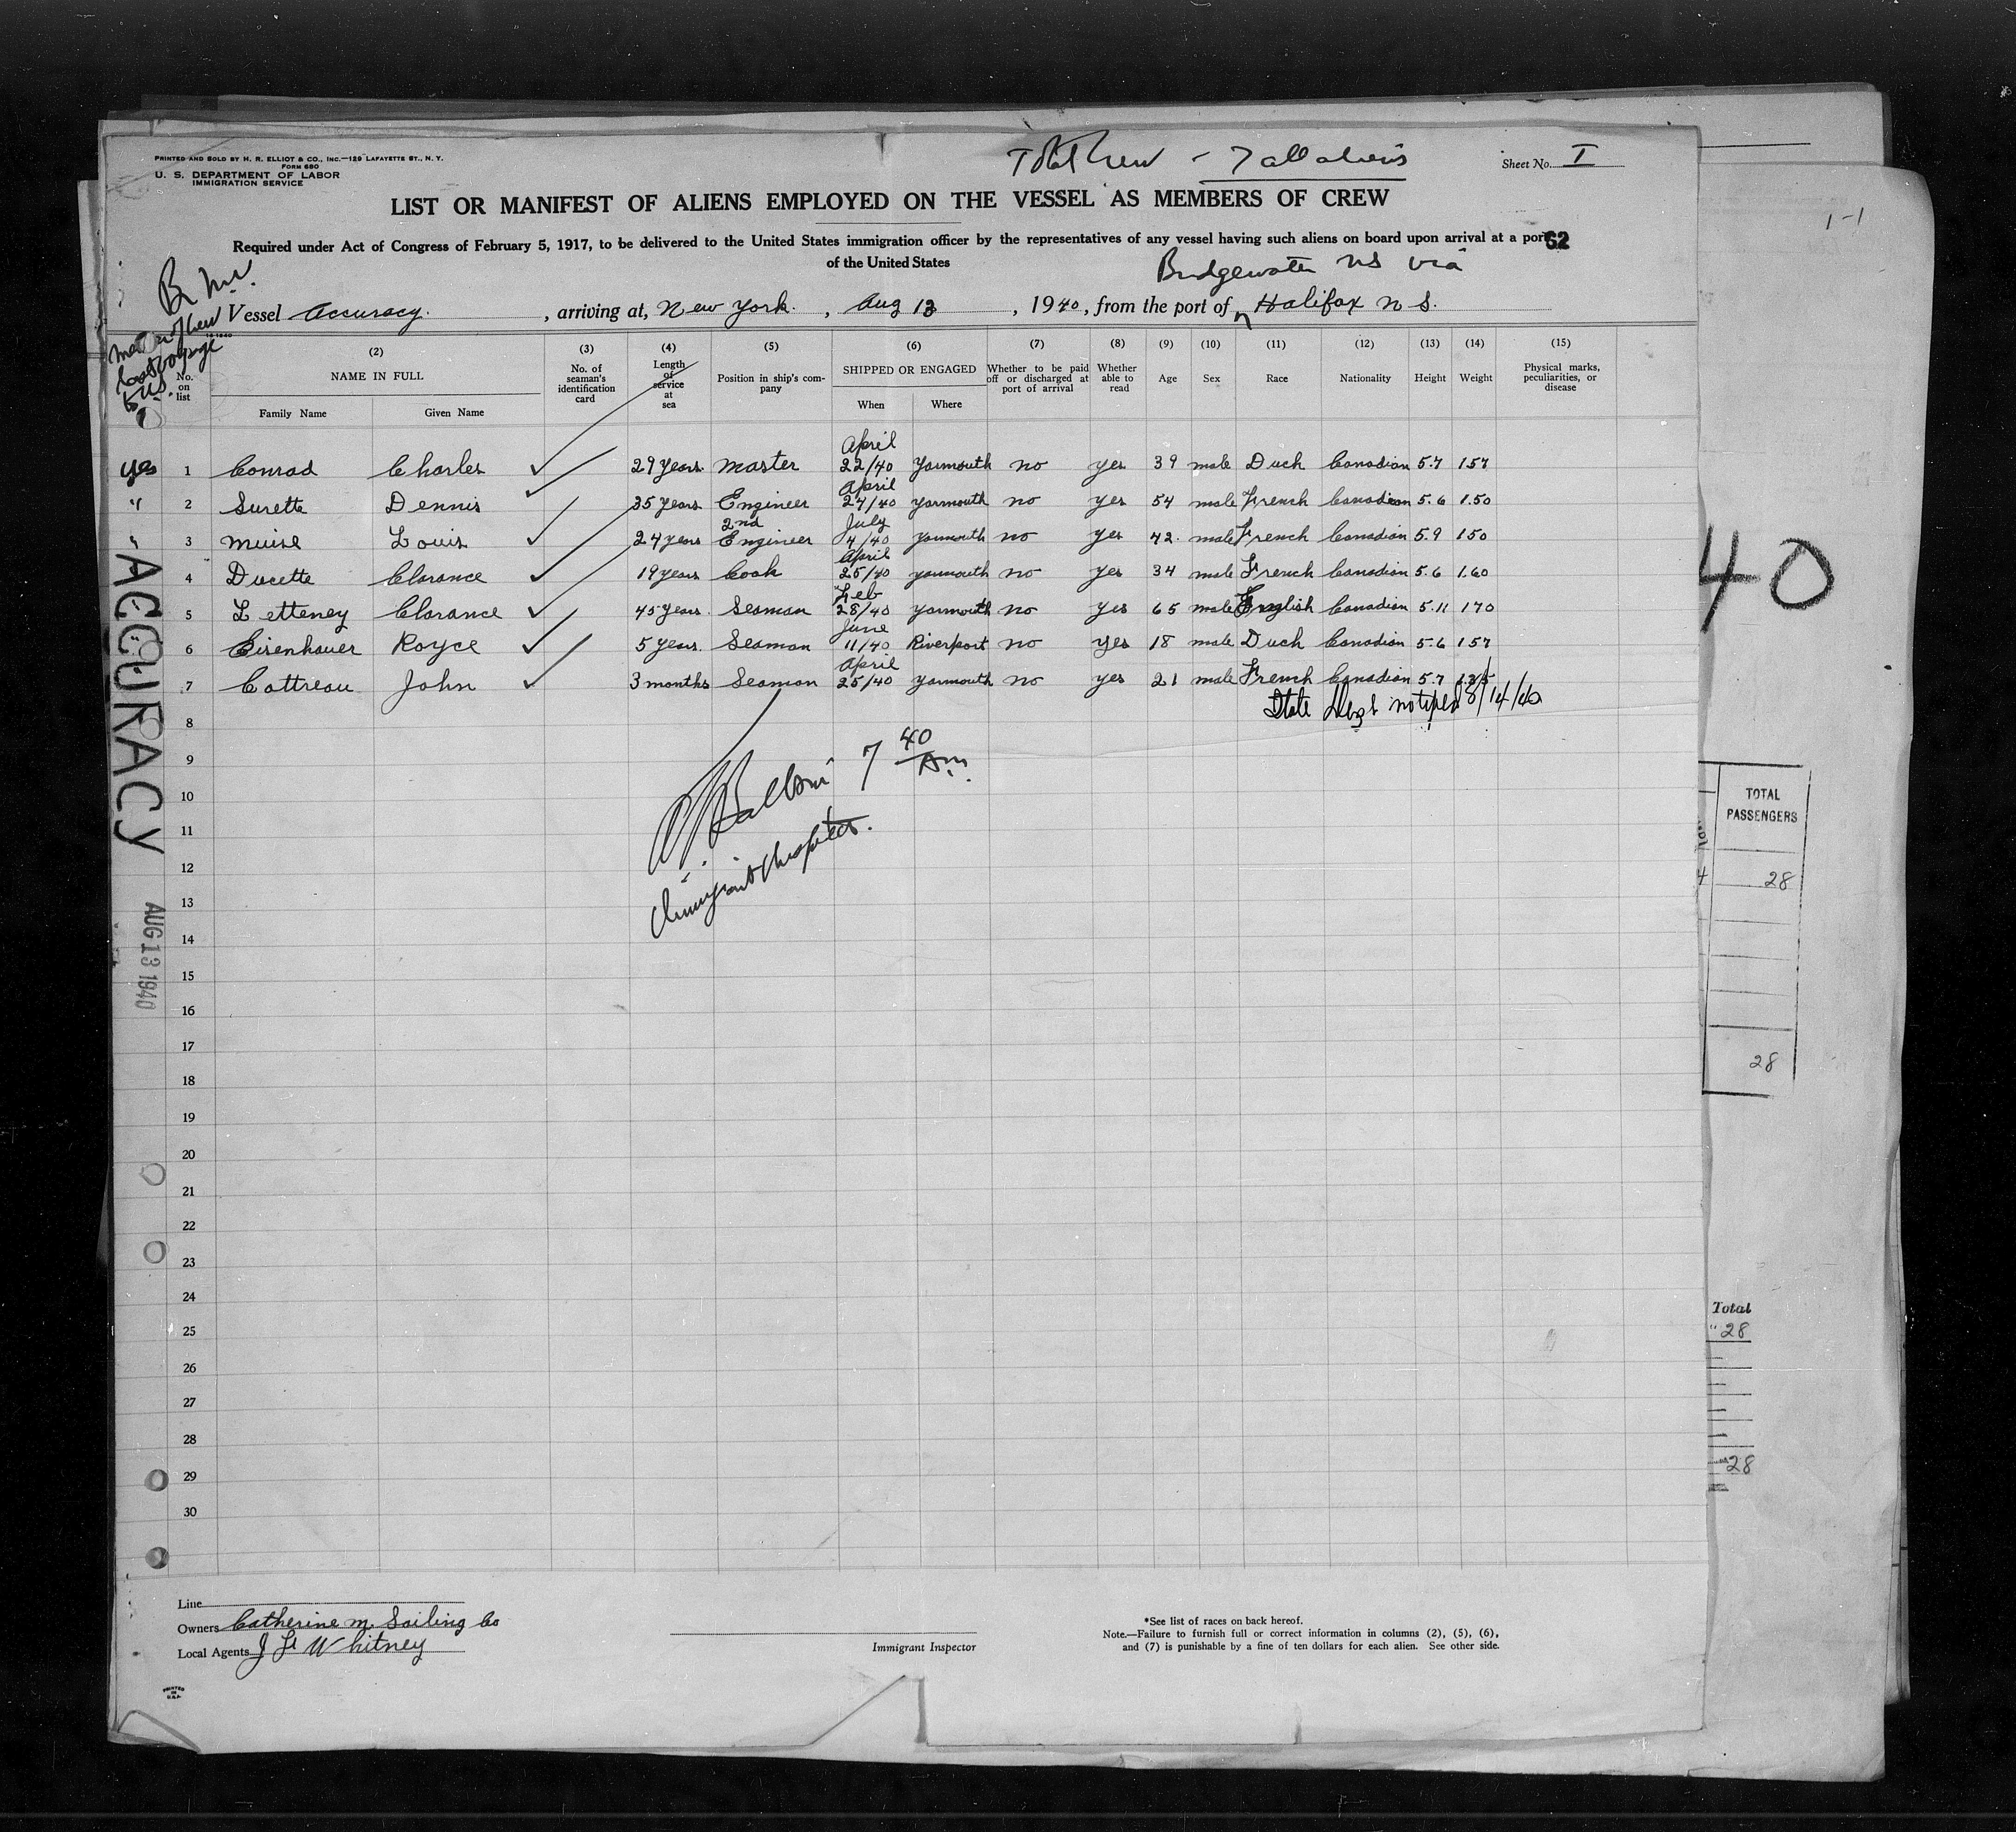 PRINTED AND SOLD BY H. R. ELLIOT & CO., INC.—129 LAFAYETTE ST., N. Y.
FORM 680
U. S. DEPARTMENT OF LABOR
IMMIGRATION SERVICE
Total Crew - 7 all aliens
Sheet No. I
LIST OR MANIFEST OF ALIENS EMPLOYED ON THE VESSEL AS MEMBERS OF CREW
Required under Act of Congress of February 5, 1917, to be delivered to the United States immigration officer by the representatives of any vessel having such aliens on board upon arrival at a port 62
of the United States
Bridgewater NS via
Vessel Accuracy. , arriving at, New York. , Aug 13 , 1940, from the port of Halifax N S.
(2) (3) (4) (5) (6) (7) (8) (9) (10) (11) (12) (13) (14) (15)
No. on list NAME IN FULL Family Name Given Name No. of seaman's identification card Length of service at sea Position in ship's company SHIPPED OR ENGAGED When Where Whether to be paid off or discharged at port of arrival Whether able to read Age Sex Race Nationality Height Weight Physical marks, peculiarities, or disease
yes 1 Conrad Charles 29 years. master April 22/40 Yarmouth no yes 39 male Duch Canadian 5.7 157
" 2 Surette Dennis 35 years Engineer April 27/40 yarmouth no yes 54 male French Canadian 5.6 1.50
" 3 Muise Louis 24 years 2nd Engineer July 4/40 yarmouth no yes 42. male French Canadian 5.9 150
4 Ducette Clarance 19 years Cook April 25/40 yarmouth no yes 34 male French Canadian 5.6 1.60
5 Letteney Clarance 45 years. Seaman Feb 28/40 yarmouth no yes 65 male English Canadian 5.11 170
6 Eisenhauer Royce 5 years. Seaman June 11/40 Riverport no yes 18 male Duch Canadian 5.6 157
7 Cottreau John 3 months Seaman April 25/40 yarmouth no yes 21 male French Canadian 5.7 1.35
State Dept notified 8/14/40
8
9
10
11
12
13
14
15
16
17
18
19
20
21
22
23
24
25
26
27
28
29
30
7 40 Am.
ACCURACY
AUG 13 1940
Line
Owners Catherine M. Sailing Co
Local Agents J F Whitney
Immigrant Inspector
*See list of races on back hereof.
Note.—Failure to furnish full or correct information in columns (2), (5), (6),
and (7) is punishable by a fine of ten dollars for each alien. See other side.
PRINTED
IN
U.S.A.
1-1
40
TOTAL
PASSENGERS
28
28
Total
"28
28